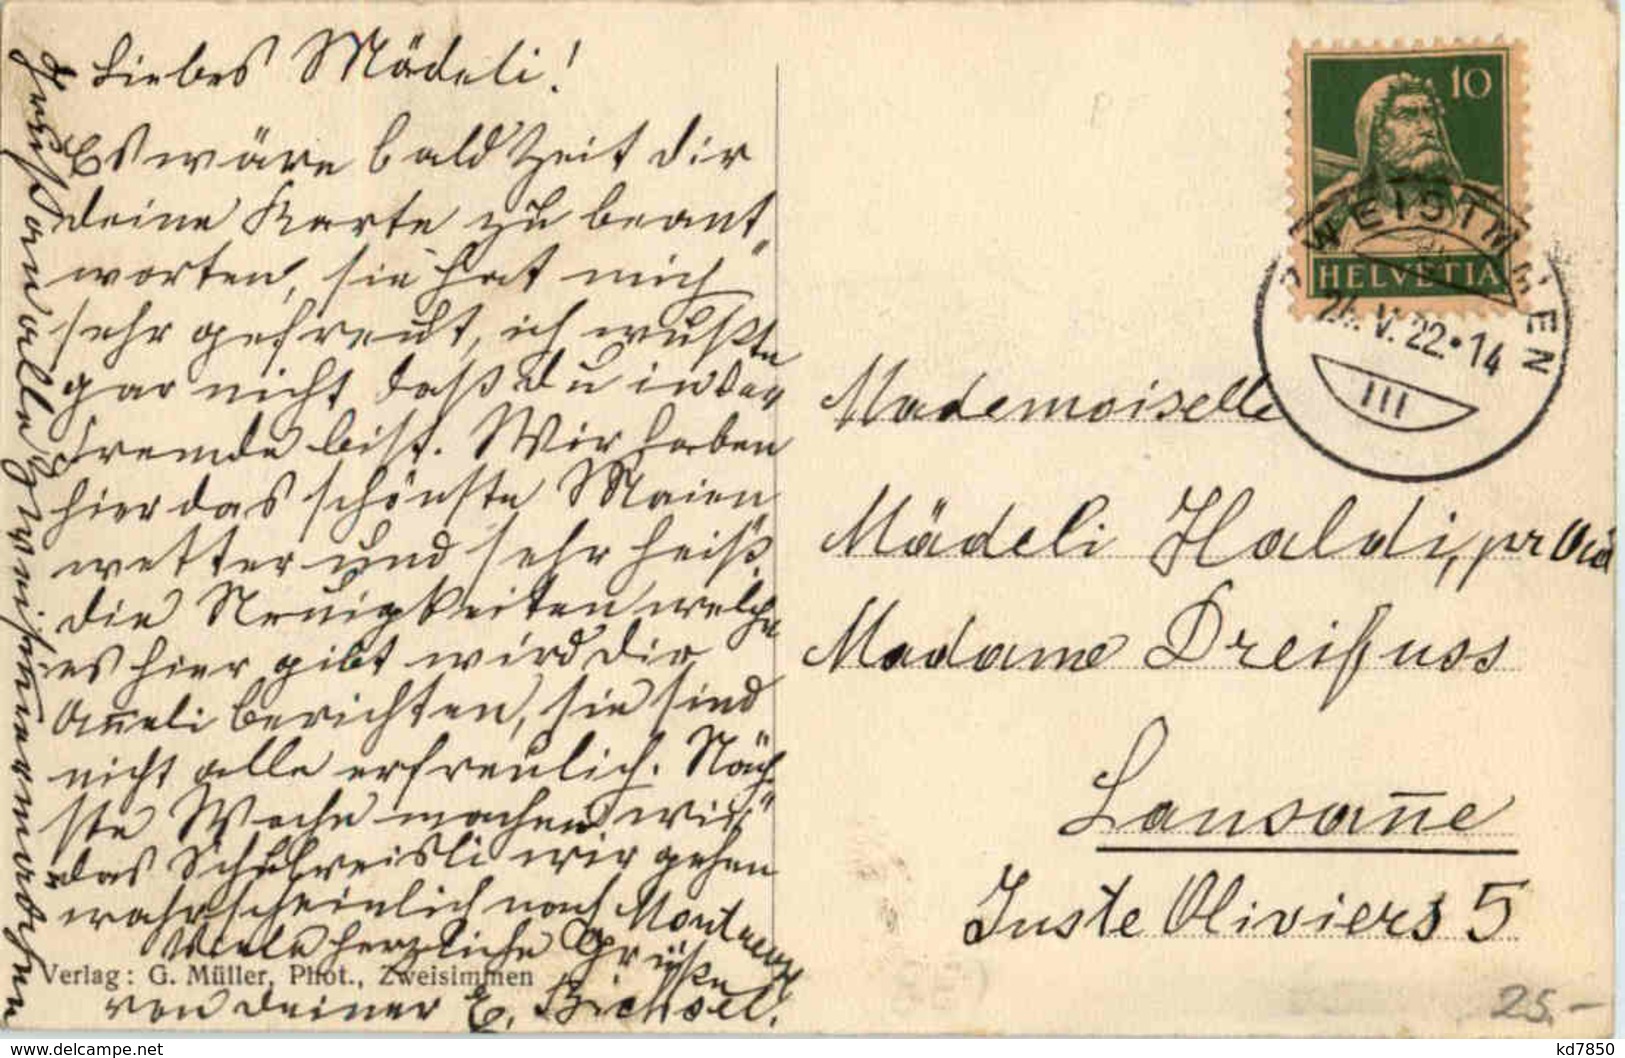 Liebes Mädeli!
Es wäre bald Zeit dir
deine Karte zu beant"
worten, sie hat mich
sehr gefreut, ich wußte
gar nicht daß du in der
Fremde bist. Wir haben
hier das schönste Maien
wetter und sehr heiß.
die Neuigkeiten welche
es hier gibt wird dir
Anneli berichten, sie sind
nicht alle erfreulich. Näch"
ste Woche machen wir
das Schulreisli wir gehen
wahrscheinlich nach Montreux
Viele herzliche Grüße
von deiner E. Bichsel.
Gruß an alle Zweisimmermädchen
Verlag: G. Müller, Phot., Zweisimmen
10
HELVETIA
ZWEISIMMEN
V. 22 • 14
III
Mademoiselle
Mädeli Haldi, pr Adr
Madame Dreifuss
Lausan̅e
Juste Oliviers 5
25.-
delcampe.net
kd7850